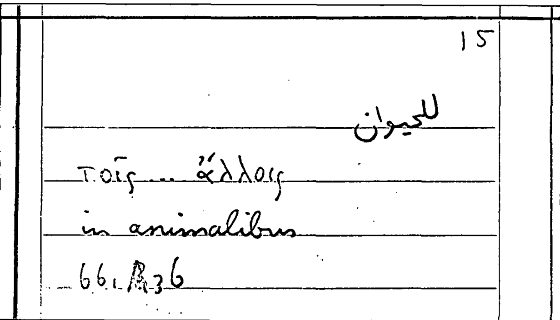 15
للحيوان
τοῖς ... ἄλλοις
in animalibus
66.